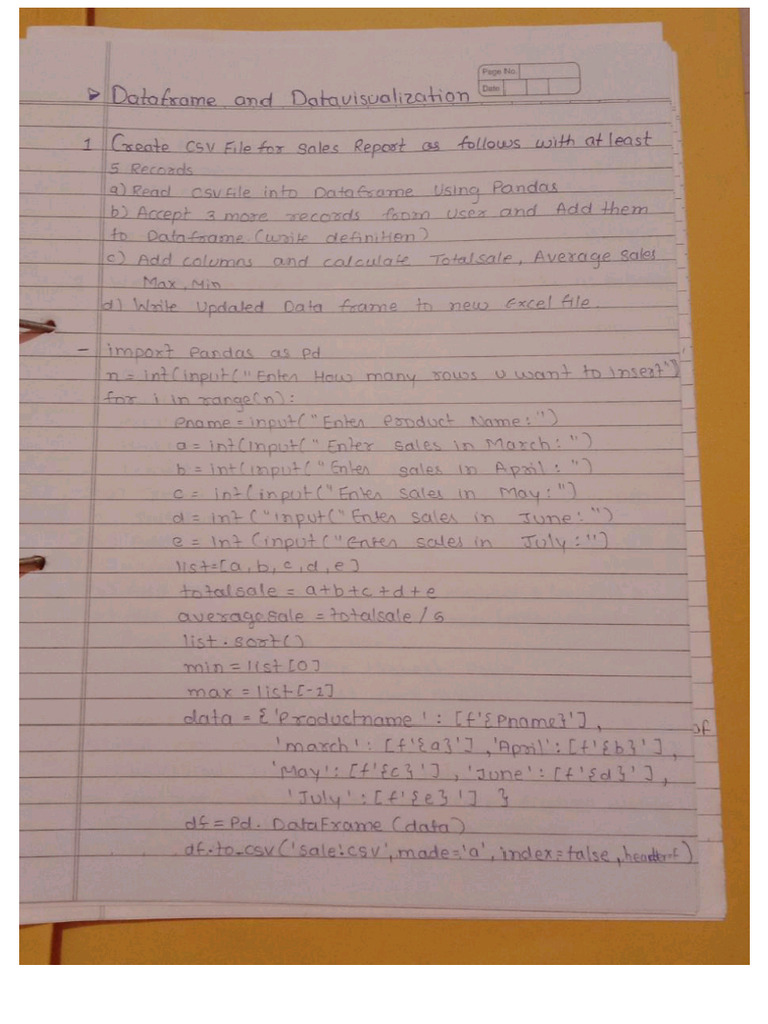 Page No.
Date
➤ Dataframe and Datavisualization
1 Create CSV File for Sales Report as follows with at least
5 Records
a) Read CSV file into Dataframe Using Pandas
b) Accept 3 more records from user and Add them
to Dataframe (write definition)
c) Add columns and calculate Totalsale, Average sales
Max, Min
d) Write Updated Data frame to new Excel file.
- import Pandas as Pd
n = int(input("Enter How many rows u want to insert"))
for i in range(n):
Pname = input("Enter Product Name:")
a = int(input("Enter sales in March:")
b = int(input("Enter sales in April: ")
c = int(input("Enter sales in May:")
d = int("input("Enter sales in June:")
e = int(input("Enter sales in July:")
list=[a, b, c, d, e]
totalsale = a+b+c+d+e
averagesale = totalsale / 5
list.sort()
min = list[0]
max = list[-1]
data = {'Productname': [f'{Pname}'],
'march': [f'{a}'], 'April': [f'{b}'],
'May': [f'{c}'], 'June': [f'{d}'],
'July': [f'{e}'] }
df = Pd. DataFrame(data)
df.to_csv('sale.csv', mode='a', index=false,
of